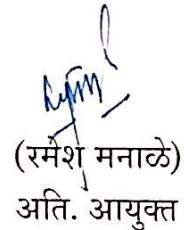 (रमेश मनाळे)
अति. आयुक्त